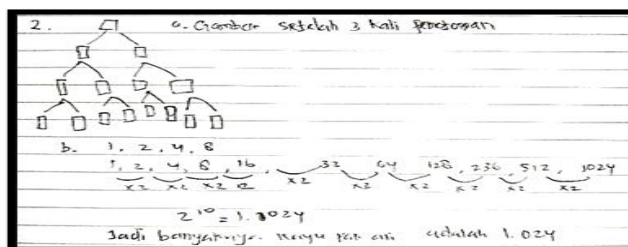 2. a. Gambar setelah 3 kali
b. 1, 2, 4, 8
1, 2, 4, 8, 16, 32 64 128, 236, 512, 1024
x2 x2 x2 x2 x2 x2 x2 x2 x2
2¹⁰ = 1.1024
Jadi banyaknya kayu adalah 1.024